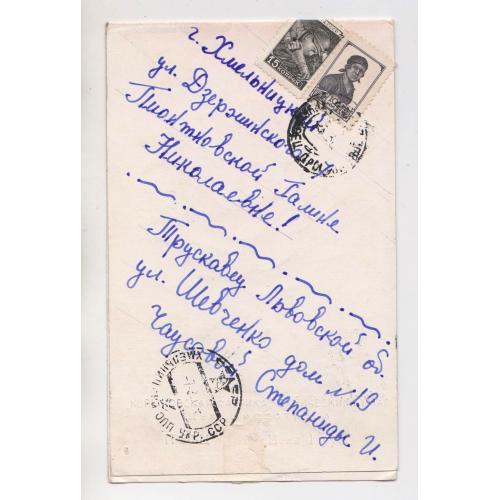 г. Хмельницкий
ул. Дзержинского
Пионтновской Галине
Николаевне!
Трускавец Львовской об.
ул. Шевченко дом №19
Чаусовой Степаниды И.
15
УКР. ССР